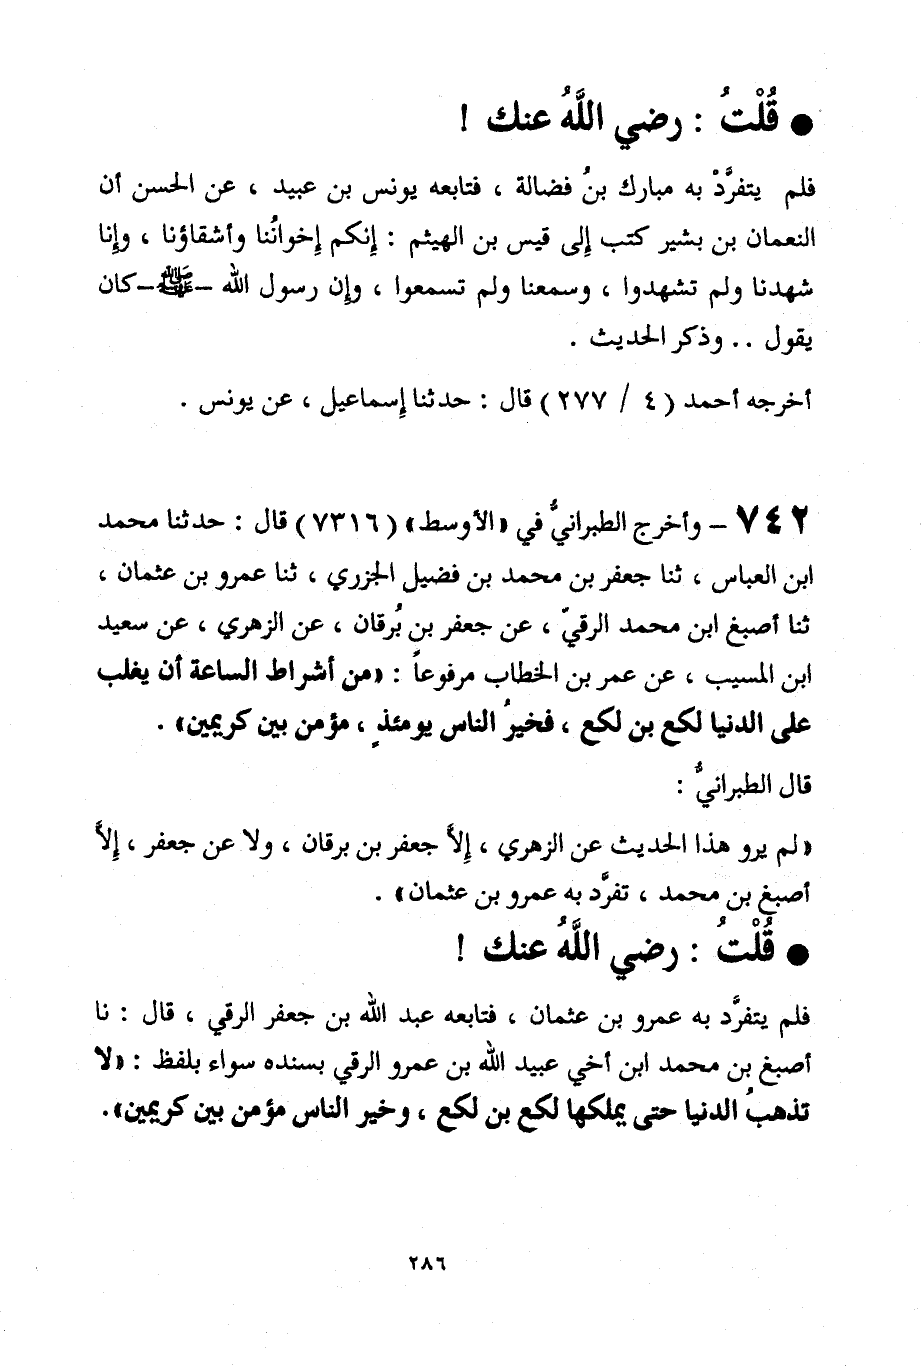 ● قُلْتُ : رضي اللَّهُ عنك !
فلم يتفرَّدْ به مبارك بنُ فضالة ، فتابعه يونس بن عبيد ، عن الحسن أن
النعمان بن بشير كتب إلى قيس بن الهيثم : إنكم إخوانُنا وأشقاؤنا ، وإنا
شهدنا ولم تشهدوا ، وسمعنا ولم تسمعوا ، وإن رسول الله –ﷺ– كان
يقول .. وذكر الحديث .
أخرجه أحمد ( ٤ / ٢٧٧ ) قال : حدثنا إسماعيل ، عن يونس .
٧٤٢ – وأخرج الطبرانيُّ في «الأوسط» ( ٧٣١٦ ) قال : حدثنا محمد
ابن العباس ، ثنا جعفر بن محمد بن فضيل الجزري ، ثنا عمرو بن عثمان ،
ثنا أصبغ ابن محمد الرقيّ ، عن جعفر بن بُرقان ، عن الزهري ، عن سعيد
ابن المسيب ، عن عمر بن الخطاب مرفوعاً : «من أشراط الساعة أن يغلب
على الدنيا لكع بن لكع ، فخيرُ الناس يومئذٍ ، مؤمن بين كريمين» .
قال الطبرانيُّ :
«لم يرو هذا الحديث عن الزهري ، إلاَّ جعفر بن برقان ، ولا عن جعفر ، إلاَّ
أصبغ بن محمد ، تفرَّد به عمرو بن عثمان» .
● قُلْتُ : رضي اللَّهُ عنك !
فلم يتفرَّد به عمرو بن عثمان ، فتابعه عبد الله بن جعفر الرقي ، قال : نا
أصبغ بن محمد ابن أخي عبيد الله بن عمرو الرقي بسنده سواء بلفظ : «لا
تذهبُ الدنيا حتى يملكها لكع بن لكع ، وخير الناس مؤمن بين كريمين».
٢٨٦